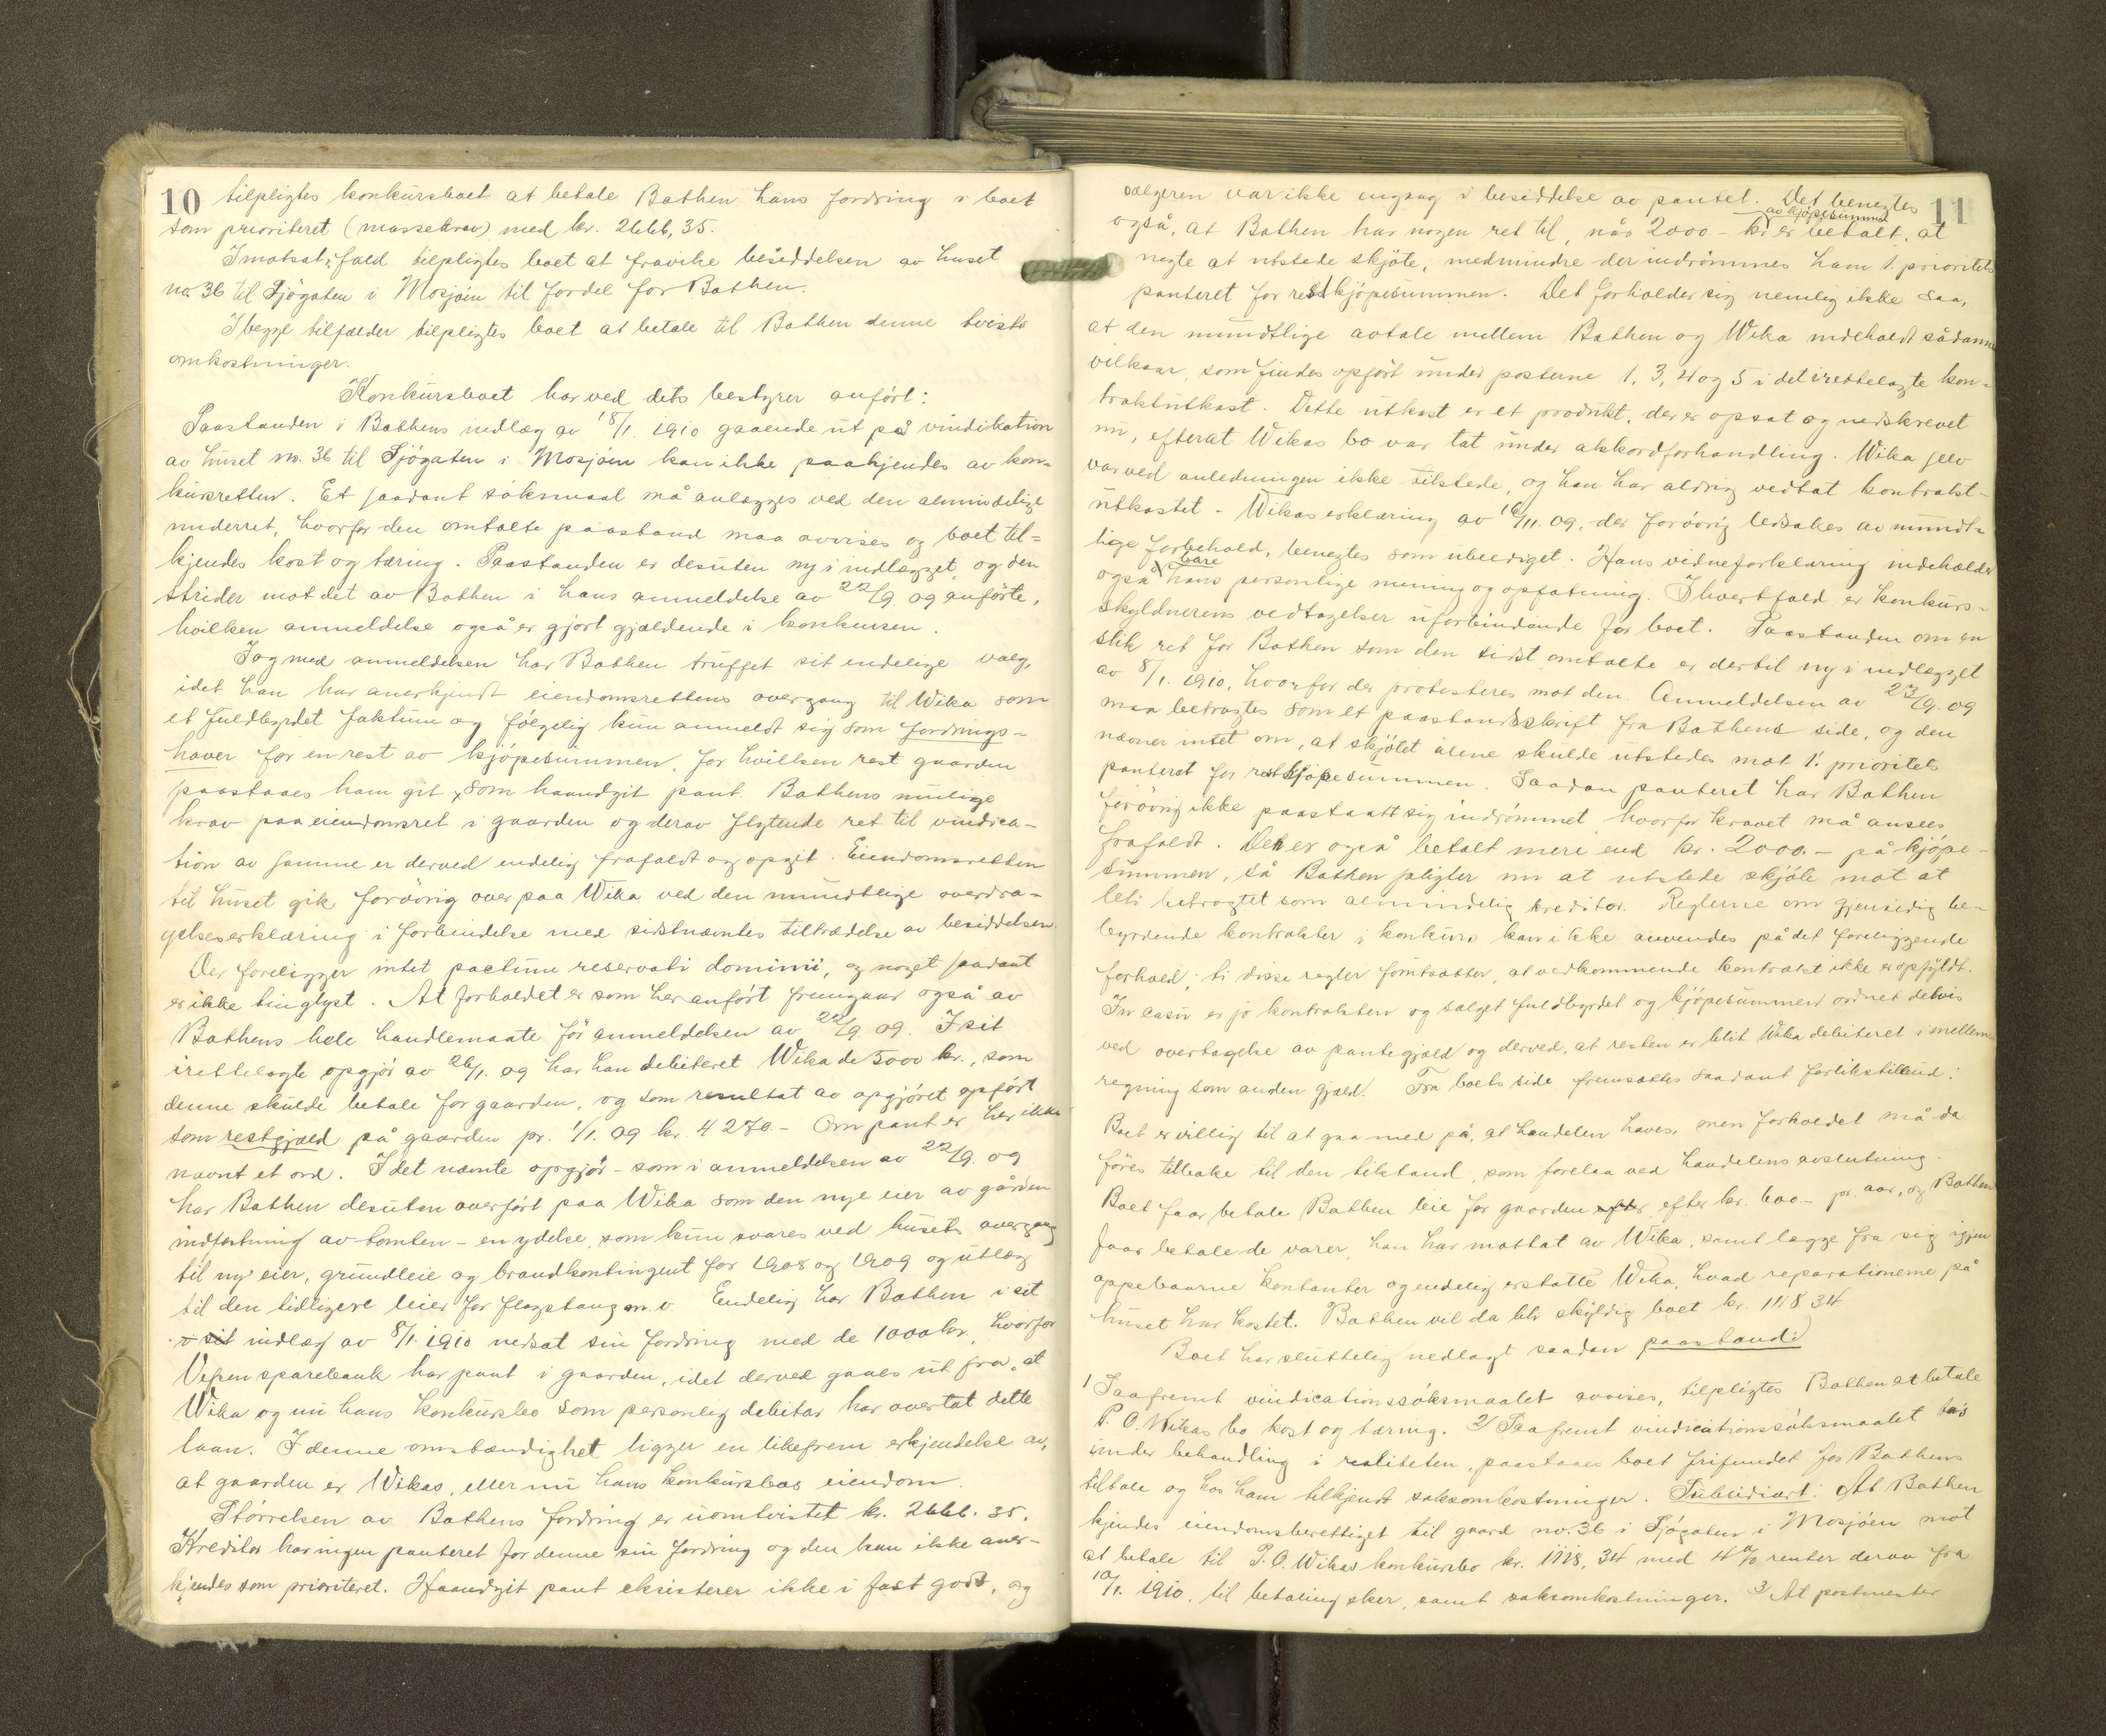 10 tilpligtes konkursboet at betale Bathen hans fordring i boet
som prioriteret (massekrav) med kr. 2666,35.
I motsat fald tilpligtes boet at fravike besiddelsen av huset
no. 36 til Sjögaten i Mosjöen til fordel for Bathen.
I begge tilfælder tilpligtes boet at betale til Bathen denne tvists
omkostninger.
Konkursboet har ved dets bestyrer anført:
Paastanden i Bathens indlæg av 8/1. 1910 gaaende ut på vindikation
av huset no. 36 til Sjögaten i Mosjöen kan ikke paakjendes av kon-
kursretten. Et saadant söksmaal må anlægges ved den almindelige
underret, hvorfor den omtalte paastand maa avvises og boet til=
kjendes kost og tæring. Paastanden er desuten ny i indlægget, og den
strider mot det av Bathen i hans anmeldelse av 22/9. 09 anførte,
hvilken anmeldelse også er gjort gjældende i konkursen.
I og med anmeldelsen har Bathen truffet sit endelige valg,
idet han har anerkjendt eiendomsrettens overgang til Wika som
et fuldbyrdet faktum og følgelig kun anmeldt sig som fordrings-
haver for en rest av kjöpesummen, for hvilken rest gaarden
paastaaes ham git som haandgit pant. Bathens mulige
krav paa eiendomsret i gaarden og derav flytende ret til vindica-
tion av samme er derved endelig frafaldt og opgit. Eiendomsretten
til huset gik forövrig over paa Wika ved den mundtlige overdra-
gelseserklæring i forbindelse med sidstnævntes tiltrædelse av besiddelsen.
Der foreligger intet pactum reservati dominii, og noget saadant
er ikke tinglyst. At forholdet er som her anført fremgaar også av
Bathens hele handlemaate för anmeldelsen av 22/9. 09. I sit
irettelagte opgjör av 26/1. 09 har han debiteret Wika de 5000 kr., som
denne skulde betale for gaarden, og som resultat av opgjöret opfört
som restgjæld på gaarden pr. 1/1. 09 kr. 4270.- Om pant er her ikke
nævnt et ord. I det nævnte opgjör - som i anmeldelsen av 22/9. 09
har Bathen desuten overfört paa Wika som den nye eier av gården
indfæstning av tomten - en ydelse, som kun svares ved husets overgang
til ny eier, grundleie og brandkontingent for 1908 og 1909 og utlæg
til den tidligere leier for flagstang m.v. Endelig har Bathen i sit
i sit indlæg av 8/1. 1910 nedsat sin fordring med de 1000 kr., hvorfor
Vefsen sparebank har pant i gaarden, idet derved gaaes ut fra, at
Wika og nu hans konkursbo som personlig debitor har overtat dette
laan. I denne omstændighet ligger en likefrem erkjendelse av,
at gaarden er Wikas, eller nu hans konkursbos eiendom.
Störrelsen av Bathens fordring er uomtvistet kr. 2666.35.
Kreditor har ingen panteret for denne sin fordring og den kan ikke aner-
kjendes som prioriteret. Haandgit pant eksisterer ikke i fast gods, og
11
sælgeren var ikke engang i besiddelse av pantet. Det benegtes
av kjöpesummen
også, at Bathen har nogen ret til, når 2000 - kr. er betalt, at
negte at utstede skjöte, medmindre der indrömmes ham 1. prioritets
panteret for restkjöpesummen. Det forholder sig nemlig ikke saa,
at den mundtlige avtale mellem Bathen og Wika indeholdt sådanne
vilkaar, som findes opfört under posterne 1, 3, 4 og 5 i det irettelagte kon-
traktutkast. Dette utkast er et produkt, der er opsat og nedskrevet
nu, efterat Wikas bo var tat under akkordforhandling. Wika selv
var ved anledningen ikke tilstede, og han har aldrig vedtat kontrakt-
utkastet. Wikas erklæring av 16/11. 09, der forövrig ledsakes av mundt-
lige forbehold, benegtes som ubeediget. Hans vidneforklaring indeholder
bare
også hans personlige mening og opfatning. I hvert fald er konkurs-
skyldnerens vedtagelser uforbindende for boet. Paastanden om en
slik ret for Bathen som den sidst omtalte er dertil ny i indlægget
av 8/1. 1910, hvorfor der protesteres mot den. Anmeldelsen av 23/9. 09
maa betragtes som et paastandsskrift fra Bathens side, og den
nævner intet om, at skjötet alene skulde utstedes mot 1. prioritets
panteret for restkjöpesummen. Saadan panteret har Bathen
forövrig ikke paastaatt sig indrömmet, hvorfor kravet må ansees
frafaldt. Der er også betalt mere end kr. 2000.- på kjöpe-
summen, så Bathen pligter nu at utstede skjöte mot at
bli betragtet som almindelig kreditor. Reglerne om gjensidig be-
byrdende kontrakter i konkurs kan ikke anvendes på det foreliggende
forhold; ti disse regler forutsætter, at vedkommende kontrakt ikke er opfyldt.
In casu er jo kontrakten og salget fuldbyrdet og kjöpesummen ordnet delvis
ved overtagelse av pantegjæld og derved, at resten er blit Wika debiteret i mellem
regning som anden gjæld. Fra boets side fremsattes saadant forlikstilbud:
Boet er villig til at gaa med på, at handelen hæves, men forholdet må da
föres tilbake til den tilstand, som forelaa ved handelens avslutning.
Boet faar betale Bathen leie for gaarden efter efter kr. 600.- pr. aar, og Bathen
faar betale de varer, han har mottat av Wika, samt lægge fra sig igjen
oppebaarne kontanter og endelig erstatte Wika, hvad reparationerne på
huset har kostet. Bathen vil da bli skyldig boet kr. 1118.34.
Boet har sluttelig nedlagt saadan paastand:
1 Saafremt vindicationssöksmaalet avvises, tilpligtes Bathen at betale
P. O. Wikas bo kost og tæring. 2/ Saafremt vindicationssöksmaalet tas
under behandling i realiteten, paastaaes boet frifundet for Bathens
tiltale og hos ham tilkjendt saksomkostninger. Subsidiært: At Bathen
kjendes eiendomsberettiget til gaard no. 36 i Sjögaten i Mosjöen mot
at betale til P. O. Wikas konkursbo kr. 1118,34 med 4 % renter derav fra
10/1. 1910, til betaling sker, samt saksomkostninger. 3/ At postmester